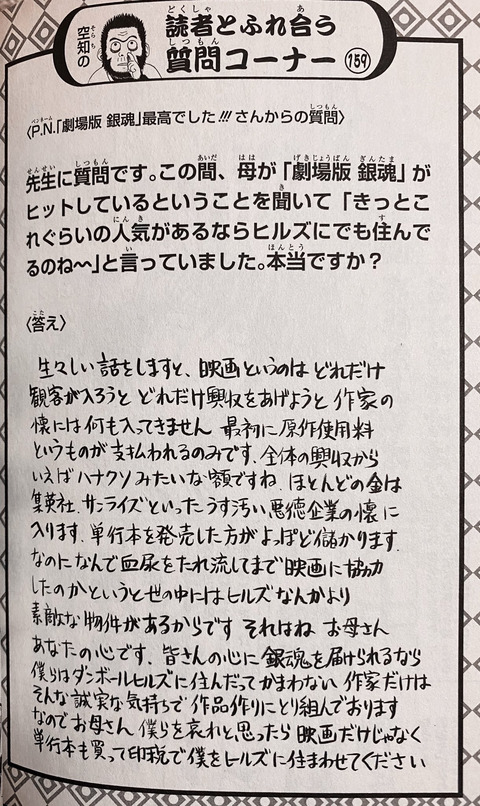 空知の
読者とふれ合う
質問コーナー 159
〈P.N.「劇場版 銀魂」最高でした!!!さんからの質問〉
先生に質問です。この間、母が「劇場版 銀魂」が
ヒットしているということを聞いて「きっとこ
れぐらいの人気があるならヒルズにでも住んで
るのね〜」と言っていました。本当ですか?
〈答え〉
生々しい話をしますと、映画というのは どれだけ
観客が入ろうと どれだけ興収をあげようと 作家の
懐には何も入ってきません 最初に原作使用料
というものが支払われるのみです.全体の興収から
いえばハナクソみたいな額ですね.ほとんどの金は
集英社.サンライズといったうす汚い悪徳企業の懐に
入ります.単行本を発売した方がよっぽど儲かります.
なのになんで血尿をたれ流してまで映画に協力
したのかというと世の中にはヒルズなんかより
素敵な物件があるからです それはね お母さん
あなたの心です、皆さんの心に銀魂を届けられるなら
僕らはダンボールヒルズに住んだってかまわない 作家だけは
そんな誠実な気持ちで 作品作りにとり組んでおります
なのでお母さん 僕らを哀れと思ったら映画だけじゃなく
単行本も買って印税で僕をヒルズに住まわせてください